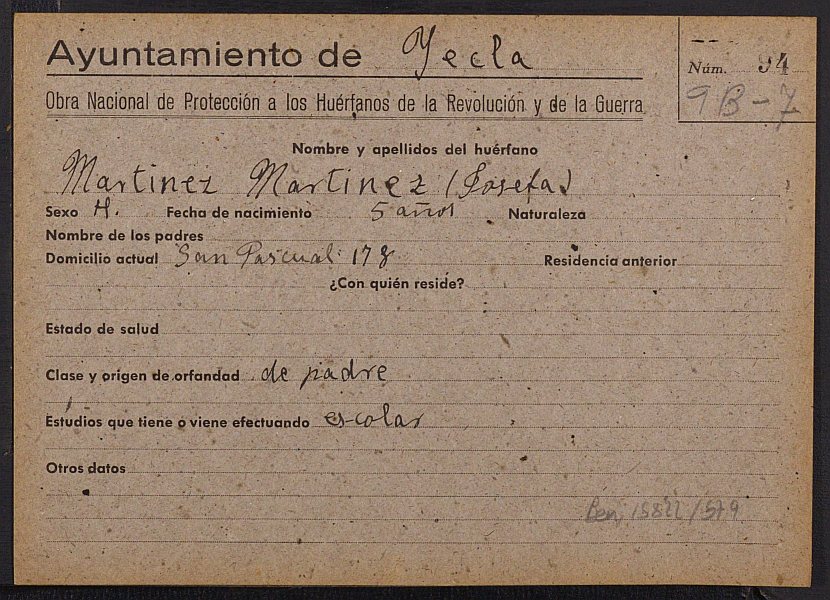 Ayuntamiento de Yecla
Núm. 94
9B-7
Obra Nacional de Protección a los Huérfanos de la Revolución y de la Guerra
Nombre y apellidos del huérfano
Martinez Martinez (Josefa)
Sexo H. Fecha de nacimiento 5 años Naturaleza
Nombre de los padres
Domicilio actual San Pascual 178 Residencia anterior
¿Con quién reside?
Estado de salud
Clase y origen de orfandad de padre
Estudios que tiene o viene efectuando escolar
Otros datos
Ben 15822/579